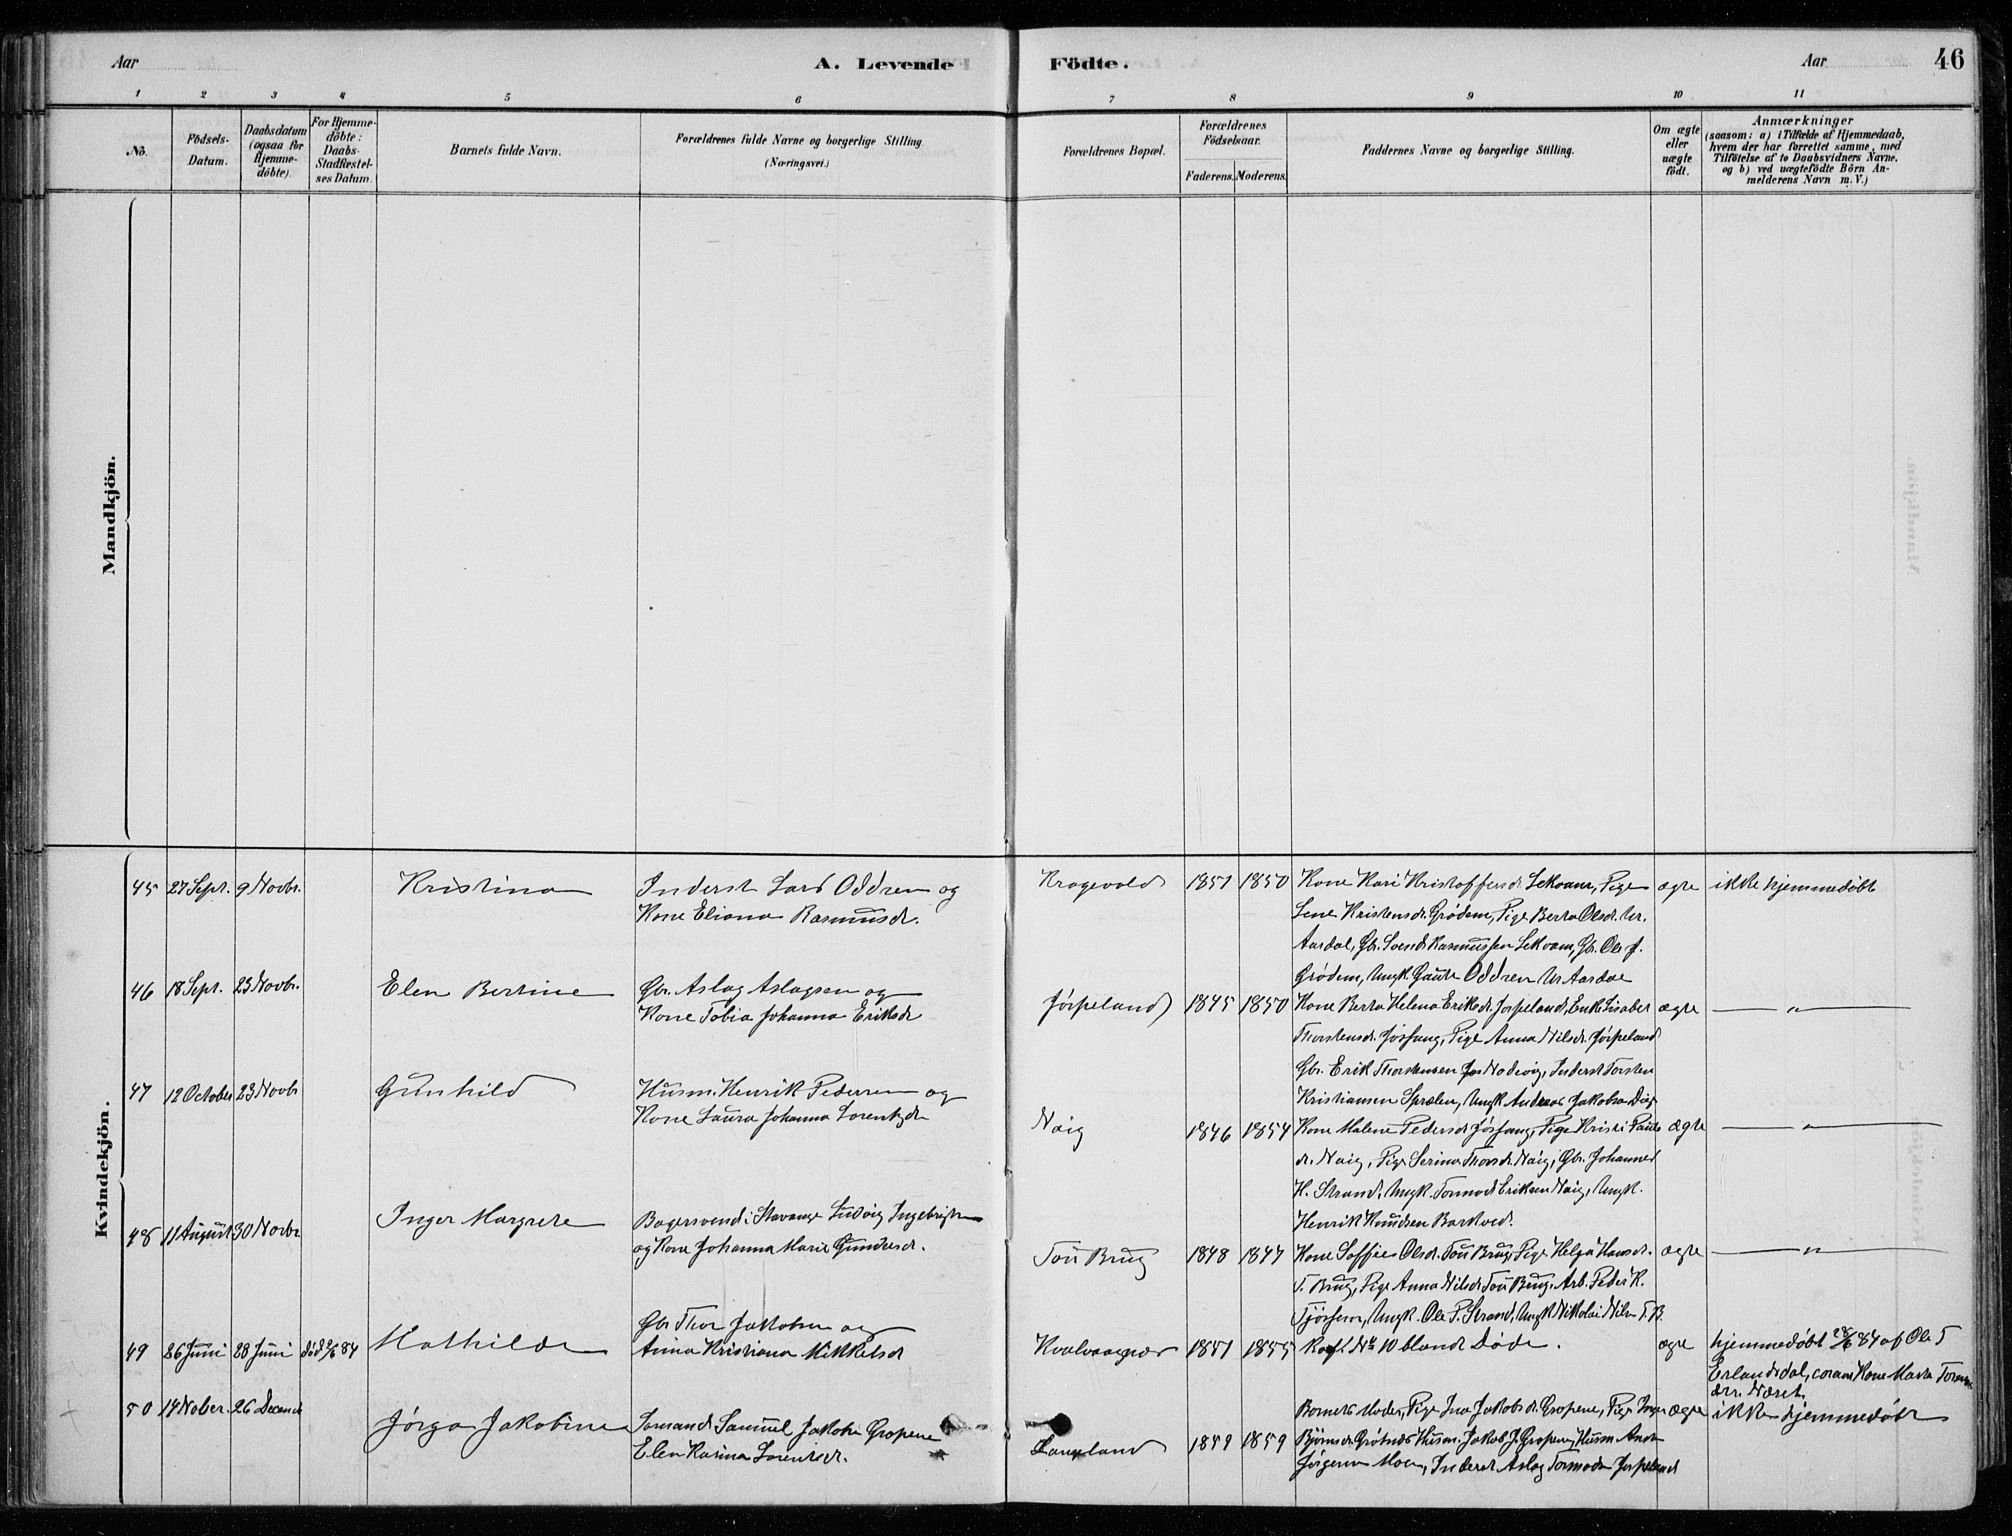 Aar
A. Levende Födte.
Aar
46
1 2 3 4 5 6 7 8 9 10 11
No.
Födsels-Datum.
Daabsdatum (ogsaa for Hjemme-döbte).
For Hjemme-döbte: Daabs-Stadfæstel-ses Datum.
Barnets fulde Navn.
Forældrenes fulde Navne og borgerlige Stilling. (Næringsvei.)
Forældrenes Bopæl.
Forældrenes Födselsaar.
Faderens. Moderens.
Faddernes Navne og borgerlige Stilling.
Om ægte eller uægte födt.
Anmærkninger
(saasom: a) i Tilfælde af Hjemmedaab, hvem der har forrettet samme, med Tilföielse af to Daabsvidners Navne. og b) ved uægtefödte Börn An-melderens Navn m. V.)
Mandkjön.
Kvindekjön.
45 27 Sept. 9 Novbr. Kristina Inderst Lars Oddsen og
Kone Eliana Rasmusdr.
Kragevold 1851 1850 Kone Kari Kristoffersdr. Lekvam, Pige
Lene Kristensdr. Grödem, Pige Berta Olsdr. Ur.
Aardal, Gbr. Svend Rasmussen Lekvam, Gbr. Ole J.
Grödem, Ungk. Gaute Oddsen Ur Aardal
ægte ikke hjemmedöbt
46 18 Sept. 23 Novbr. Elen Bertine Gbr. Aslag Aslagsen og
Kone Tobia Johanna Eriksdr
Jörpeland 1845 1850 Kone Berta Helena Eriksdr. Jörpeland, Enke Lisabet
Thorstensdr. Jösfang, Pige Anna Nilsdr. Jörpeland
Gbr. Erik Thorstensen Nodvig, Inderst Torsten
Kristiansen Sprælen, Ungk. Andreas Jakobsen
ægte — „ —
47 12 October 23 Novbr Gunhild Husm. Henrik Pedersen og
Kone Laura Johanna Lorentzdr
Naig 1846 1854 Kone Malene Pedersdr Jösfang, Pige Kristi
dr. Naig, Pige Serina Thorsdr. Naig, Gbr. Johannes
H. Strand, Ungk. Tormod Eriksen Naig, Ungk.
Henrik Knudsen Barkved.
ægte — „ —
48 11 August 30 Novbr Inger Margrete Bagersvend i Stavanger Ludvig Ingebrigtsen
og Kone Johanna Marie Gundersdr.
Tou Brug 1848 1847 Kone Soffie Olsdr. Tou Brug, Pige Helga Hansdr.
T. Brug, Pige Anna Nilsdr Tou Brug. Arb. Peder K.
Tjösfem, Ungk. Ole P. Strand, Ungk Nikolai Nilsen T. B.
ægte — „ —
49 26 Juni 28 Juni död 84 Mathilde Gbr Thor Jakobsen og
Anna Kristiana Mikkelsdr
Kvalvaagnes 1851 1855 Konf. No 10 blandt Döde.
ægte hjemmedöbt 28/6 84 af Ole T
Erlandsdal, coram Kone Marta
Næret.
50 14 Nober. 26 Decemb Jörga Jakobine Sömand Samuel Jakobsen Gropene
Elen Karina Lorentsdr.
Langeland 1859 1859 Barnets Moder, Pige Ina Jakobsdr. Gropene, Pige Inger
Björnsdr. Grötnes Husm. Jakob J. Gropene, Husm
Jörgensen Moen, Inderst Aslag Tormodsen Jörpeland
ægte ikke hjemmedöbt